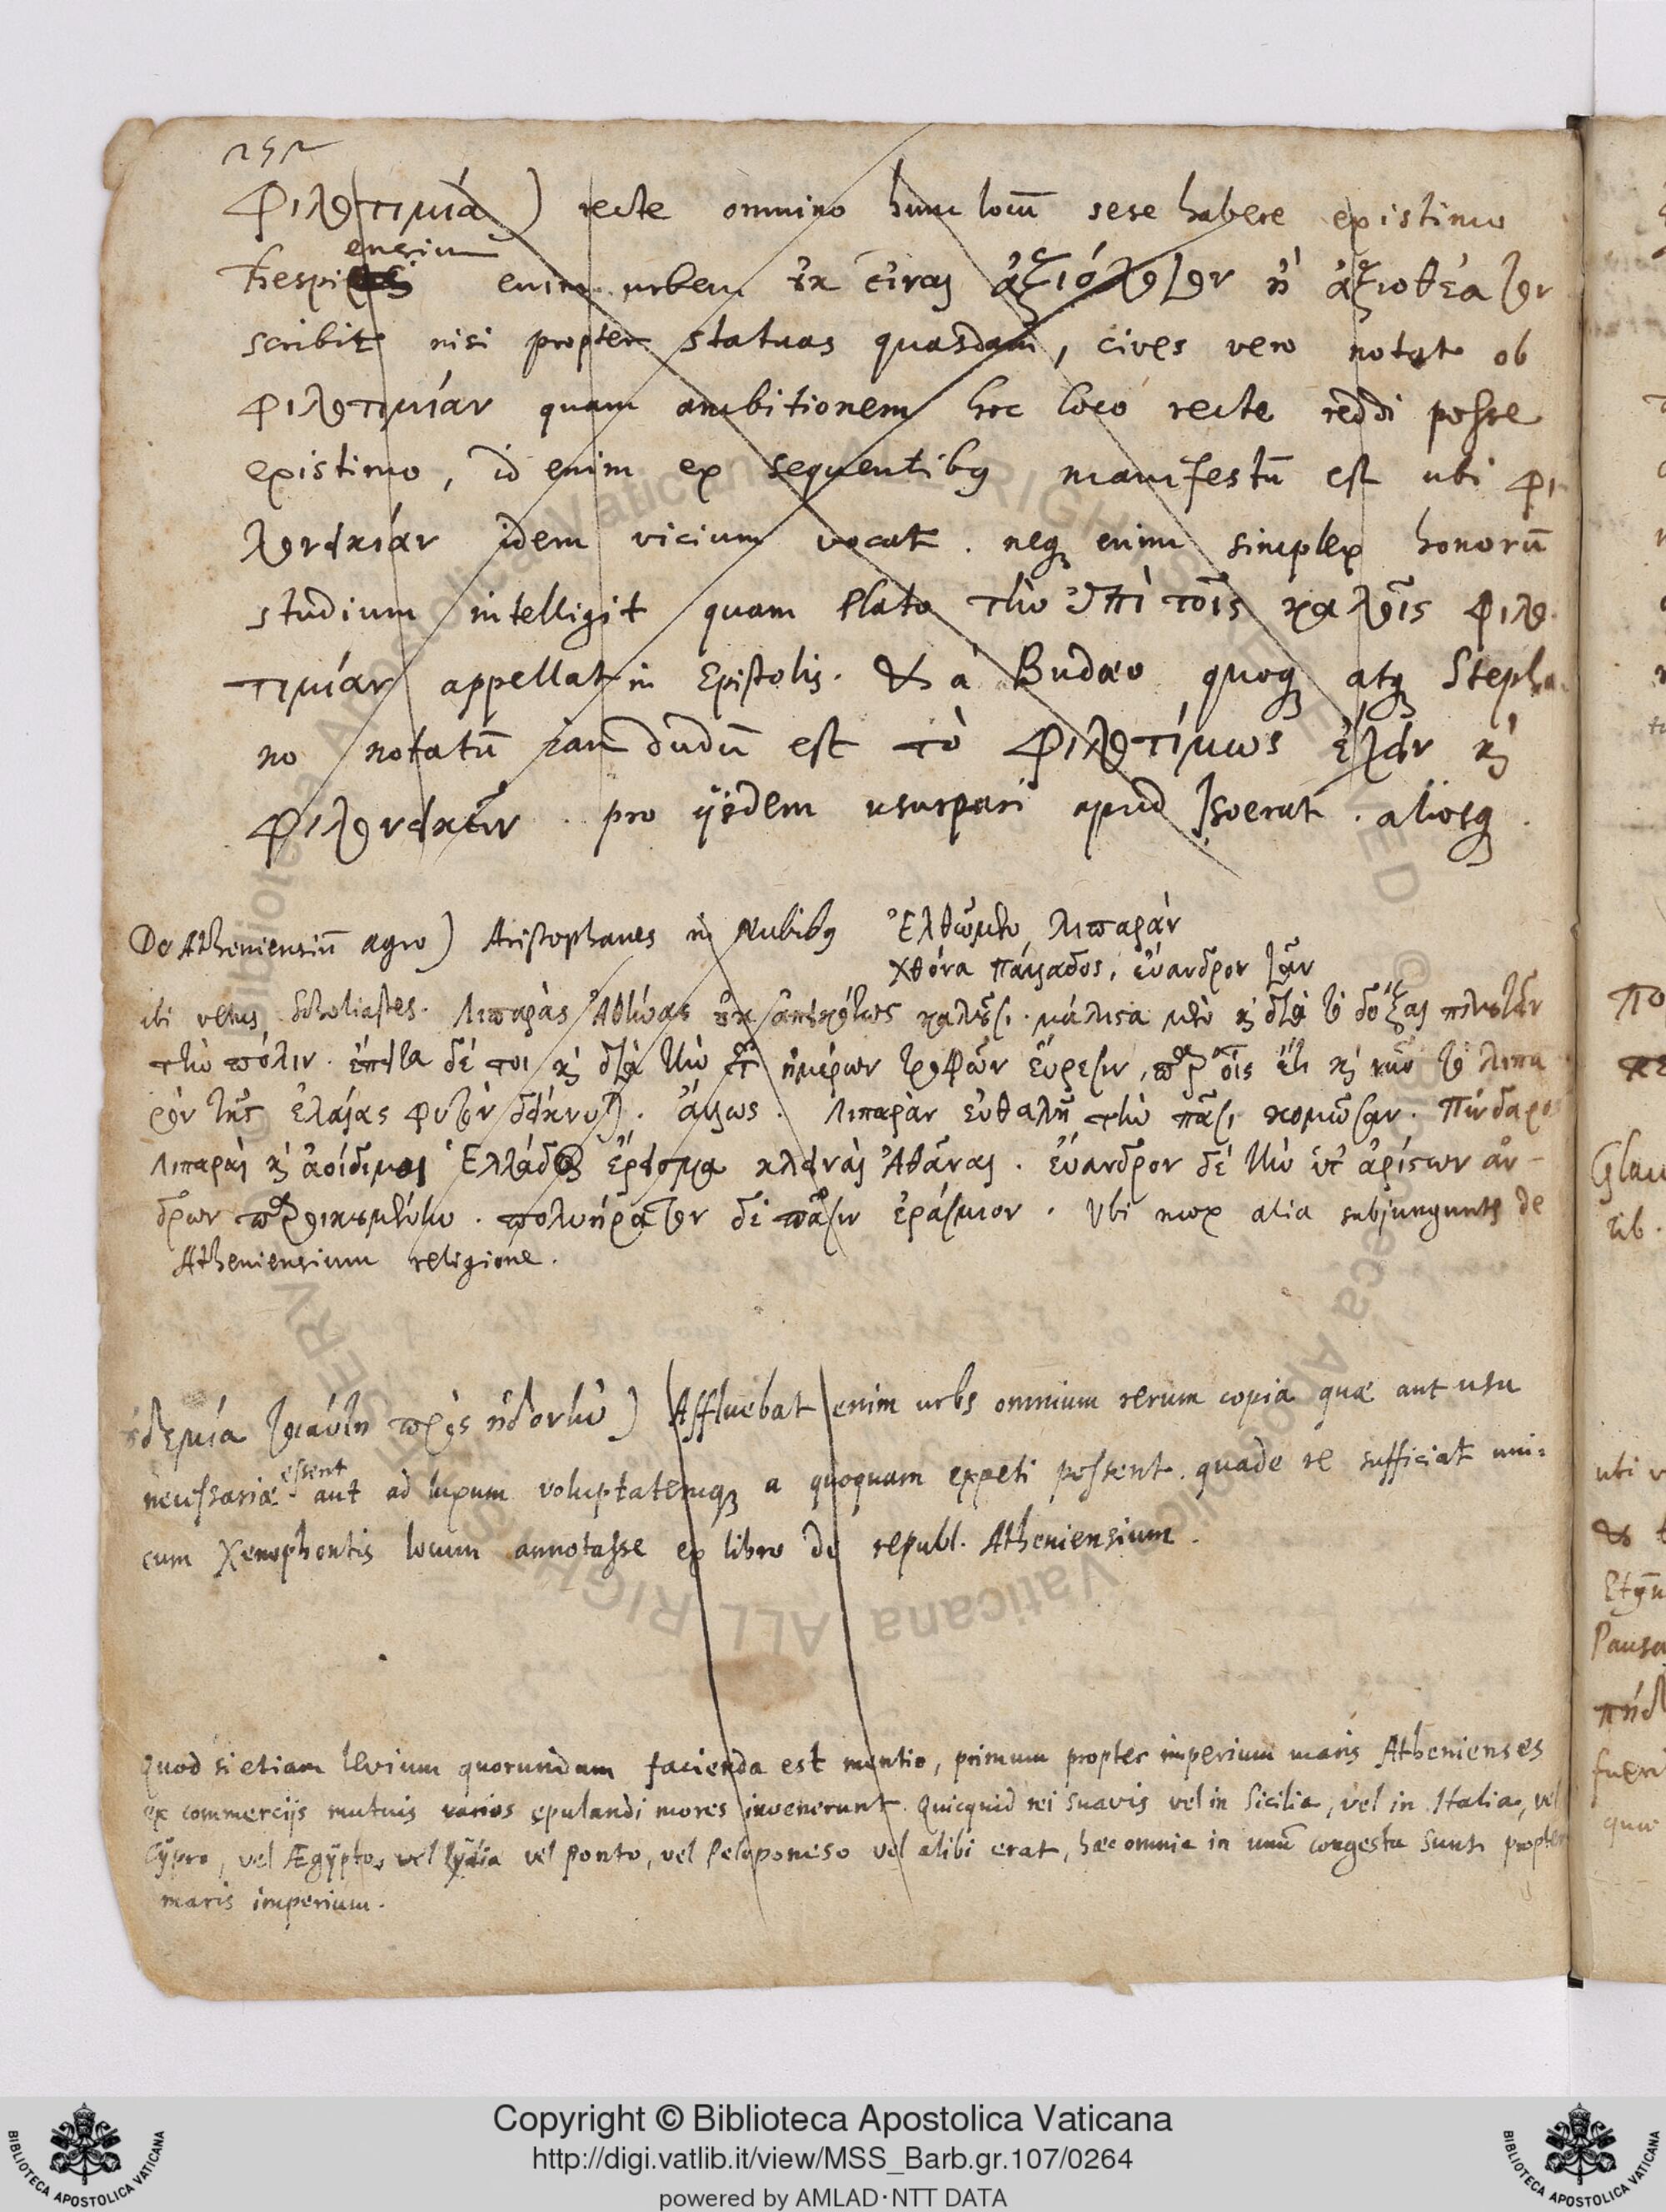 252
Φιλοτιμία) recte omnino hunc locū sese habere existimo
ensium
Thespi enim urbem οὐκ εἶναι ἀξιόλογον ἢ ἀξιοθέατον
scribit nisi propter statuas quasdam, cives vero notat ob
φιλοτιμίαν quam ambitionem hoc loco recte reddi posse
existimo, id enim ex sequentibq manifestū est ubi φι-
λονεικίαν idem vicium vocat. neqꝫ enim simplex honorū
studium intelligit quam Plato τὴν ἐπὶ τοῖς καλοῖς φιλο-
τιμίαν appellat in Epistolis. & à Budæo quoqꝫ atqꝫ Stepha-
no notatū jam dudū est τὸ φιλοτίμως ἔχειν καὶ
φιλονεικεῖν. pro ijsdem usurpari apud Isocrat. aliosqꝫ.
De Atheniensiū agro) Aristophanes in Nubibq Ἐλθωμεν λιπαρὰν
χθόνα Παλλάδος, εὔανδρον γᾶν
ibi vetus Scholiastes. Λιπαρὰς Ἀθήνας οὐκ ἀπεικότως καλοῦσι. μάλιστα μὲν καὶ διὰ τὸ δόξαι πλουτεῖν
τὴν πόλιν. ἔπειτα δέ τοι καὶ διὰ τὴν τῶν ἡμέρων τροφῶν εὕρεσιν, παρ' οἷς ἔτι καὶ νῦν τὸ λιπα
ρὸν τῆς ἐλαίας φυτὸν δείκνυται. ἄλλως. Λιπαρὰν εὐθαλῆ τὴν πᾶσι κομῶσαν. Πίνδαρος
Λιπαραὶ καὶ ἀοίδιμοι Ἑλλάδος ἔρεισμα κλειναὶ Ἀθᾶναι. εὔανδρον δὲ τὴν ὑπ' ἀρίστων ἀν-
δρῶν παροικουμένην. πολυήρατον δὲ πᾶσιν ἐράσμιον. Ubi mox alia subjungunts de
Atheniensium religione.
οὐδεμία τοιαύτη πρὸς ἡδονὴν) Affluebat enim urbs omnium rerum copia quæ aut usu
essent
necessariæ aut ad luxum voluptatemqꝫ a quoquam expeti possent. qua de re sufficiat uni-
cum Xenophontis locum annotasse ex libro de republ. Atheniensium.
Quod si etiam levium quorundam facienda est mentio, primum propter imperium maris Athenienses
ex commercijs mutuis varios epulandi mores invenerunt. Quicquid rei suavis vel in Sicilia, vel in Italia, vel
Cypro, vel Ægÿpto, vel Lÿdia vel Ponto, vel Peloponeso vel alibi erat, hæc omnia in unū congesta sunt propter
maris imperium.
Copyright © Biblioteca Apostolica Vaticana
http://digi.vatlib.it/view/MSS_Barb.gr.107/0264
powered by AMLAD·NTT DATA
BIBLIOTECA APOSTOLICA VATICANA
BIBLIOTECA APOSTOLICA VATICANA